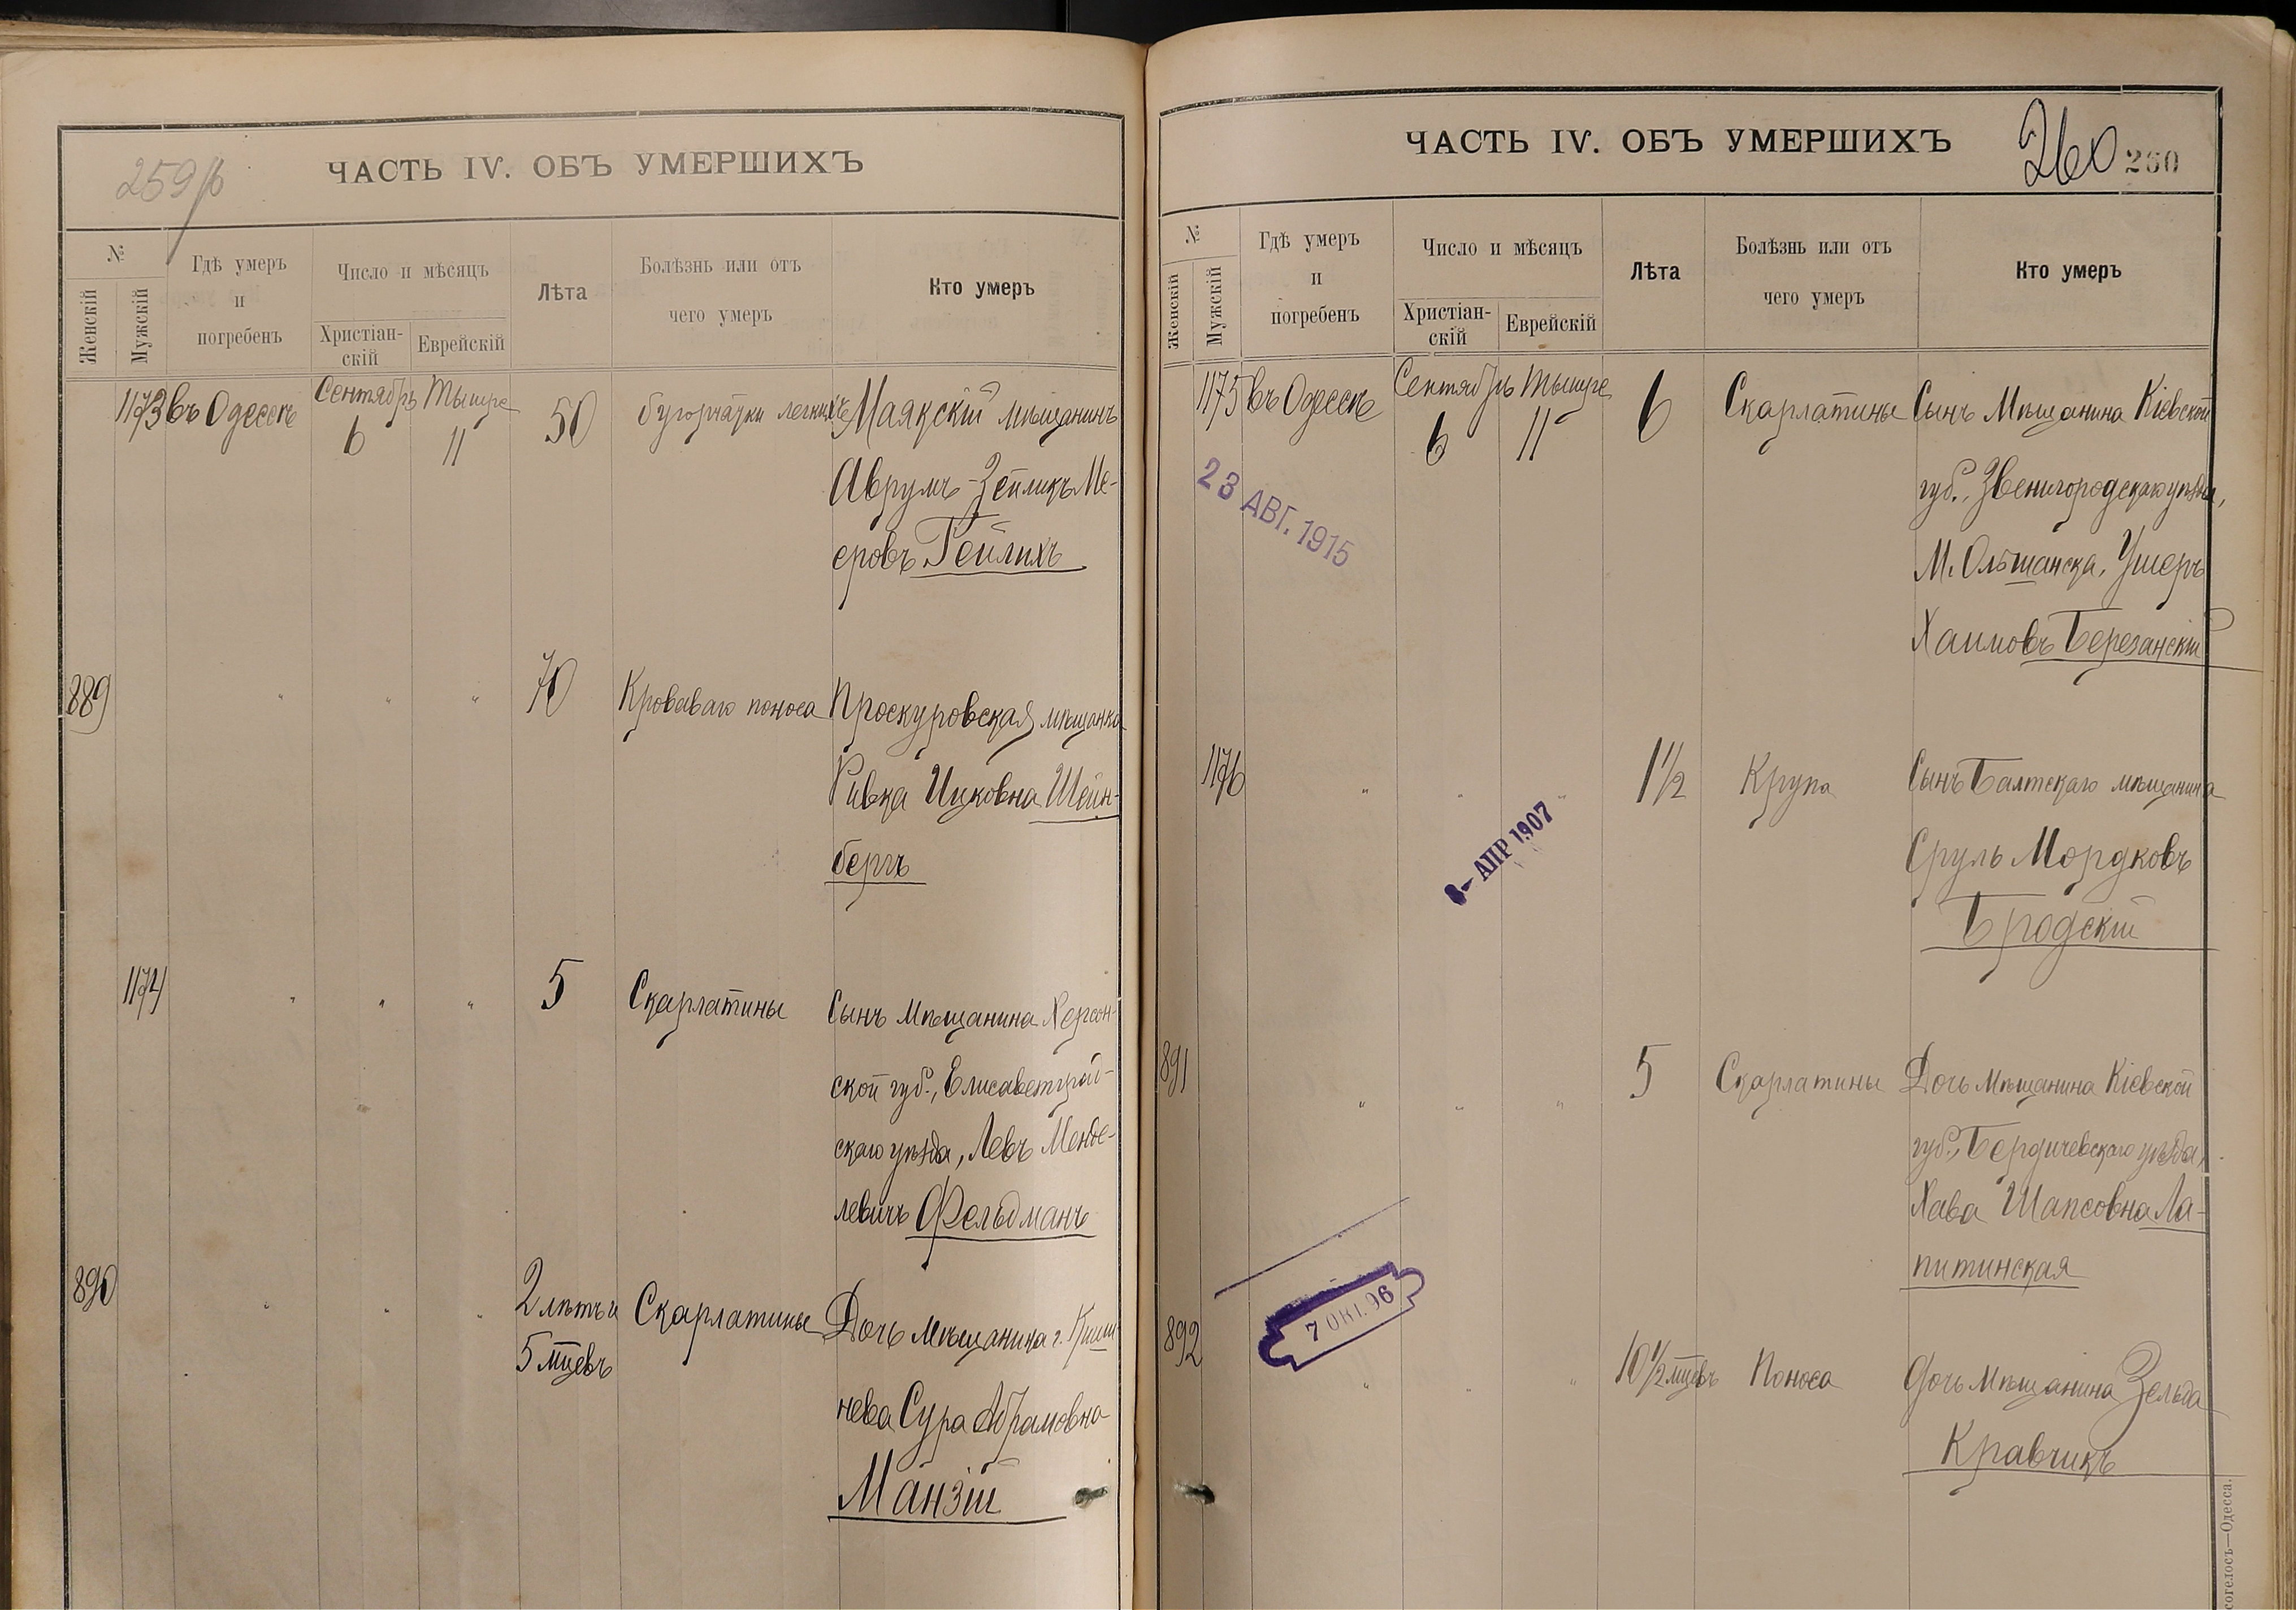 259/б
ЧАСТЬ IV. ОБЪ УМЕРШИХЪ
№
Женскій
Мужскій
Гдѣ умеръ
и
погребенъ
Число и мѣсяцъ
Христіан-
скій
Еврейскій
Лѣта
Болѣзнь или отъ
чего умеръ
Кто умеръ
1173 въ Одессѣ Сентябрь 6 Тышре 11 50 бугорчатки легкихъ Маякскій мѣщанинъ
Аврумъ-Зейликъ Ме-
еровъ Гейлихъ
889 " " " 70 Кроваваго поноса Проскуровская мѣщанка
Ривка Ицковна Шейн-
бергъ
1174 " " " 5 Скарлатины Сынъ Мѣщанина Херсон-
ской губ., Елисаветград-
скаго уѣзда, Левъ Менде-
левичъ Фельдманъ
890 " " " 2 лѣтъ и Скарлатины Дочь Мѣщанина г. Киши-
5 мцевъ
нева Сура Абрамовна
Манзій
ЧАСТЬ IV. ОБЪ УМЕРШИХЪ
260
260
№
Женскій
Мужскій
Гдѣ умеръ
и
погребенъ
Число и мѣсяцъ
Христіан-
скій
Еврейскій
Лѣта
Болѣзнь или отъ
чего умеръ
Кто умеръ
1175 въ Одессѣ Сентябрь 6 Тышре 11 6 Скарлатины Сынъ Мѣщанина Кіевской
губ., Звенигородскаго уѣзда,
М. Ольшанска, Ушеръ
Хаимовъ Березанскій
23 АВГ. 1915
1176 " " " 1 1/2 Крупа Сынъ Балтскаго мѣщанина
Сруль Мордковъ
Бродскій
8- АПР 1907
891 " " " 5 Скарлатины Дочь Мѣщанина Кіевской
губ., Бердичевскаго уѣзда,
Хава Шапсовна Ла-
питинская
7 ОКТ. 96
892 " " " 10 1/2 мцевъ Поноса Дочь Мѣщанина Зельда
Кравчикъ
—Одесса.